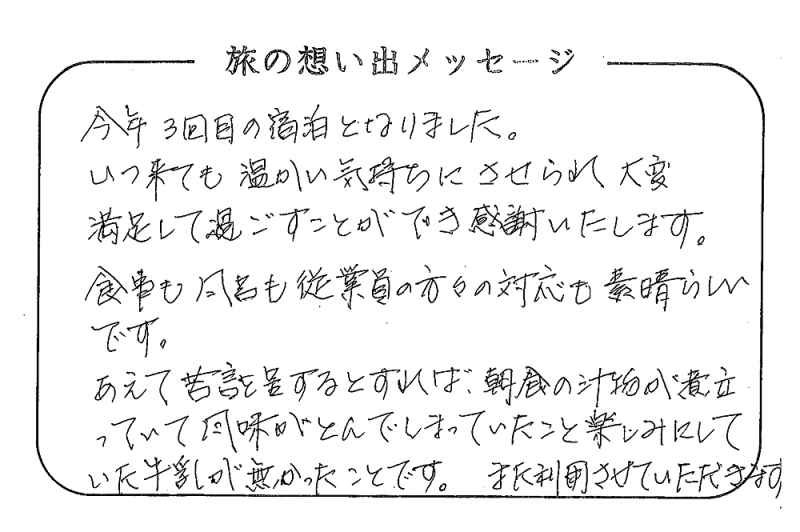 旅の想い出メッセージ
今年3回目の宿泊となりました。
いつ来ても温かい気持ちにさせられ、大変
満足して過ごすことができ感謝いたします。
食事も風呂も従業員の方々の対応も素晴らしい
です。
あえて苦言を呈するとすれば、朝食の汁物が煮立
っていて風味がとんでしまっていたこと楽しみにして
いた牛乳が無かったことです。 また利用させていただきます